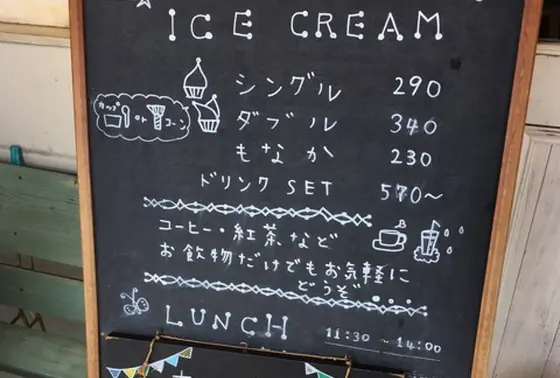 ICE CREAM
シングル 290
カップ or コーン
ダブル 340
もなか 230
ドリンク SET 570〜
コーヒー・紅茶など
お飲物だけでもお気軽に
どうぞ
LUNCH 11:30 〜 14:00